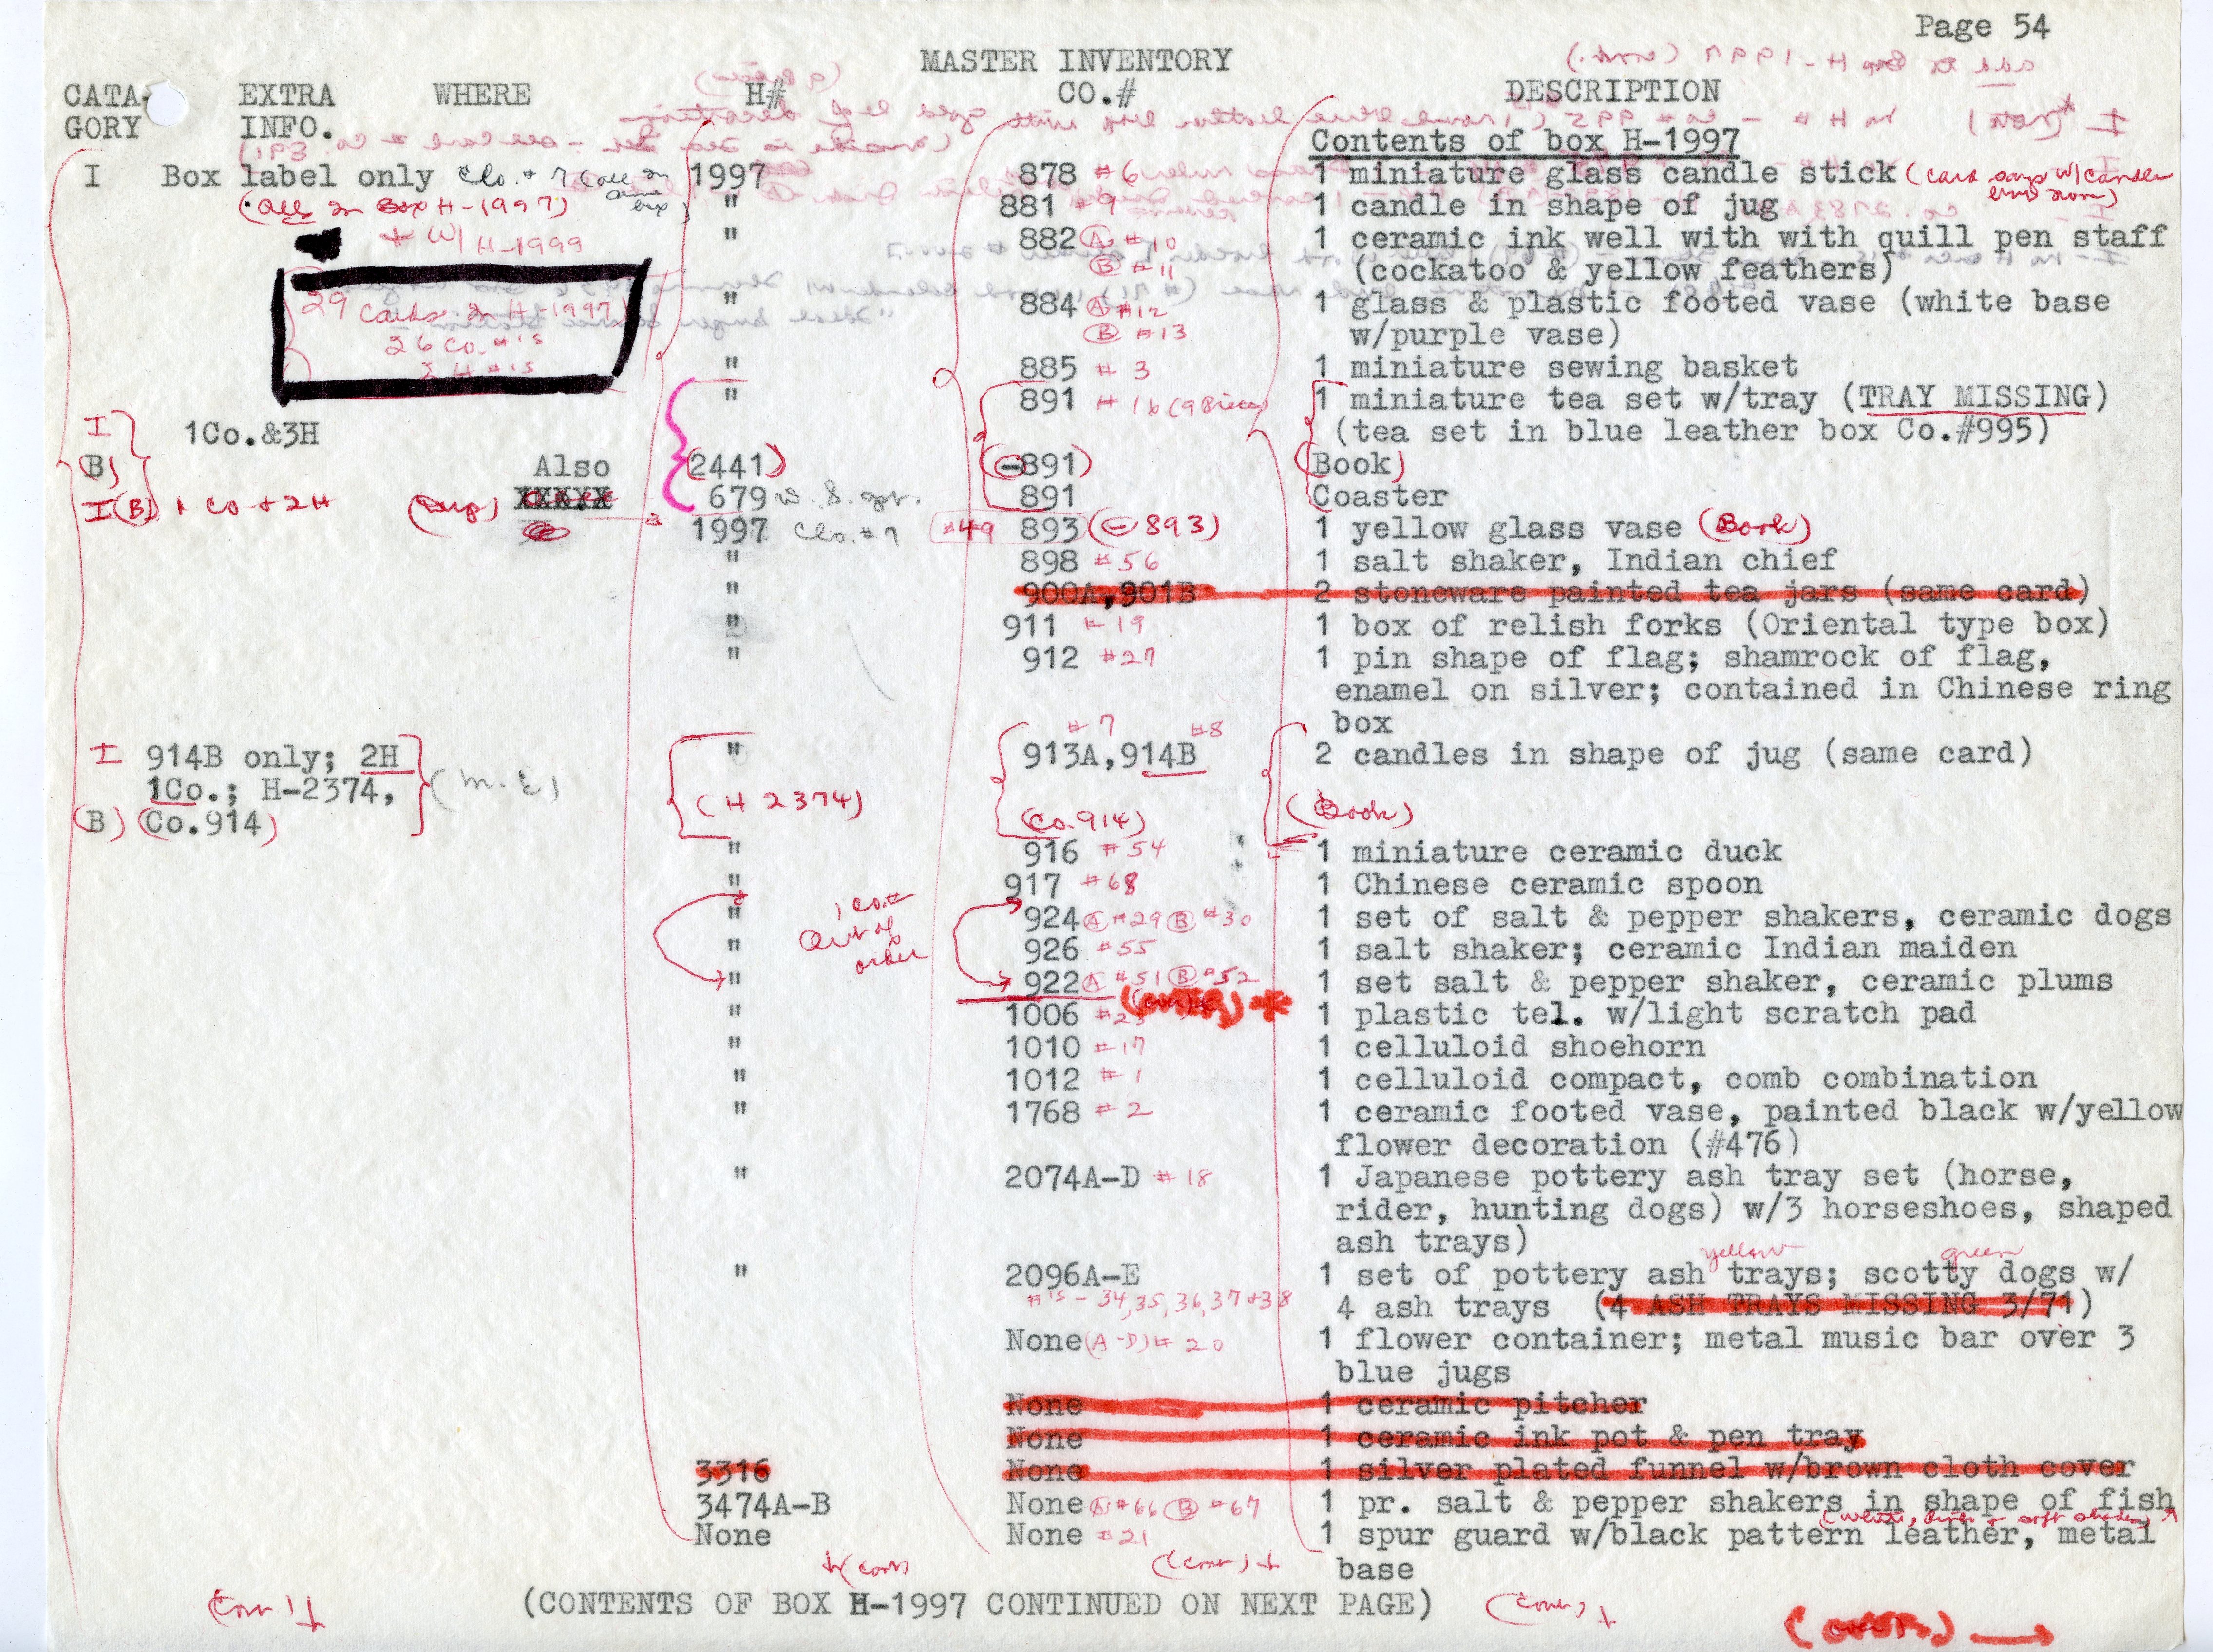 Page 54
MASTER INVENTORY
CATA- EXTRA WHERE H# CO.# DESCRIPTION
GORY INFO.
Contents of box H-1997
I Box label only Clo. #7 (all in same box) 1997 878 #6 1 miniature glass candle stick (card says w/candle
(all in Box H-1997) " 881 #9 1 candle in shape of jug
+ W/ H-1999 " 882 (A) #10 1 ceramic ink well with with quill pen staff
(B) #11 (cockatoo & yellow feathers)
29 cards in H-1997 " 884 (A) #12 1 glass & plastic footed vase (white base
26 Co. #'s (B) #13 w/purple vase)
H #'s " 885 #3 1 miniature sewing basket
" 891 #16 (9 Pieces) 1 miniature tea set w/tray (TRAY MISSING)
I 1Co.&3H (tea set in blue leather box Co.#995)
(B) Also (2441) (-891) (Book)
I(B) 1 Co + 2H XXXXX 679 891 Coaster
1997 Clo. #7 #49 893 (-893) 1 yellow glass vase (Book)
" 898 #56 1 salt shaker, Indian chief
" 900A,901B 2 stoneware painted tea jars (same card)
" 911 #19 1 box of relish forks (Oriental type box)
" 912 #27 1 pin shape of flag; shamrock of flag,
enamel on silver; contained in Chinese ring
box
#7 #8
I 914B only; 2H " 913A,914B 2 candles in shape of jug (same card)
1Co.; H-2374, (H 2374)
(B) (Co.914) (Co.914) (Book)
" 916 #54 1 miniature ceramic duck
" 917 #68 1 Chinese ceramic spoon
1 Co# out of order " 924 (A) #29 (B) #30 1 set of salt & pepper shakers, ceramic dogs
" 926 #55 1 salt shaker; ceramic Indian maiden
" 922 (A) #51 (B) #52 1 set salt & pepper shaker, ceramic plums
" 1006 #23 1 plastic tel. w/light scratch pad
" 1010 #17 1 celluloid shoehorn
" 1012 #1 1 celluloid compact, comb combination
" 1768 #2 1 ceramic footed vase, painted black w/yellow
flower decoration (#476)
" 2074A-D #18 1 Japanese pottery ash tray set (horse,
rider, hunting dogs) w/3 horseshoes, shaped
ash trays)
yellow green
" 2096A-E 1 set of pottery ash trays; scotty dogs w/
#'s - 34,35,36,37+38 4 ash trays (4 ASH TRAYS MISSING 3/71)
None (A-D) #20 1 flower container; metal music bar over 3
blue jugs
None 1 ceramic pitcher
None 1 ceramic ink pot & pen tray
3316 None 1 silver plated funnel w/brown cloth cover
3474A-B None (A) #66 (B) #67 1 pr. salt & pepper shakers in shape of fish
None None #21 1 spur guard w/black pattern leather, metal
(cont) (cont) base
(cont) (CONTENTS OF BOX H-1997 CONTINUED ON NEXT PAGE) (cont)
(over)